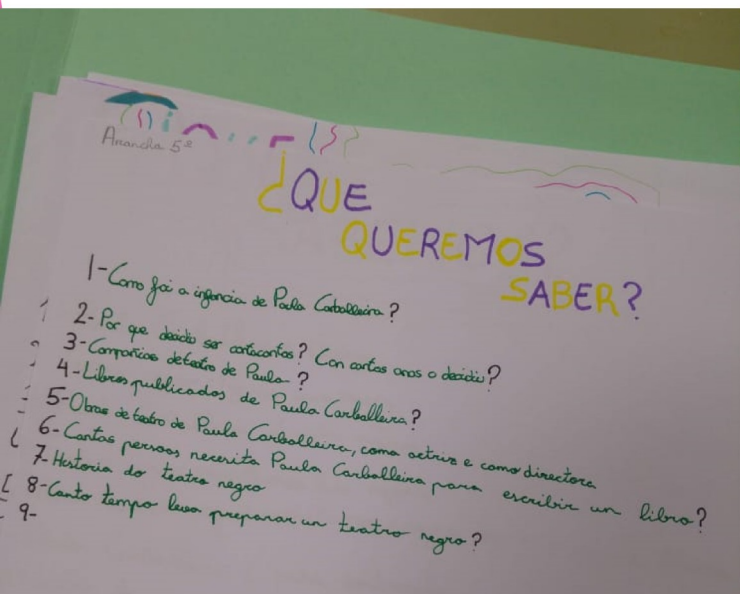 Arancha 5º
¿QUE
QUEREMOS
SABER?
1-Como foi a infancia de Paula Carballeira?
2-Por que decidio ser contacontos? Con cantos anos o decidiu?
3-Compañias de teatro de Paula?
4-Libros publicados de Paula Carballeira?
5-Obras de teatro de Paula Carballeira, como actriz e como directora
6-Cantas persoas necesita Paula Carballeira para escribir un libro?
7-Historia do teatro negro
8-Canto tempo leva preparar un teatro negro?
9-